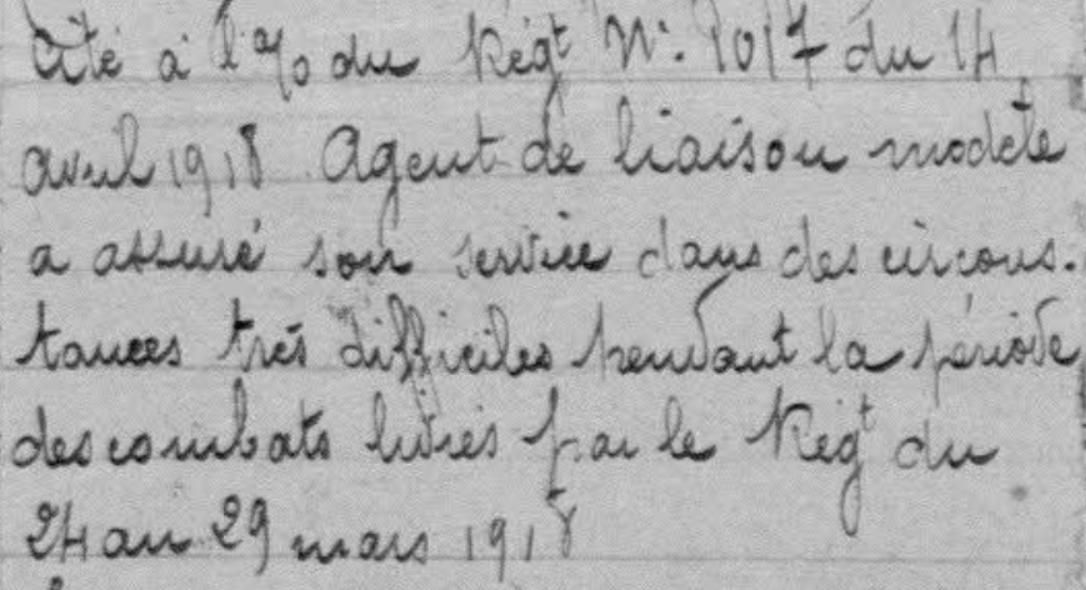 Cité à l'o/o du Régt N: 1017 du 14
avril 1918 Agent de liaison modèle
a assuré son service dans des circons.
tances très difficiles pendant la période
des combats livrés par le Régt du
24 au 29 mars 1918